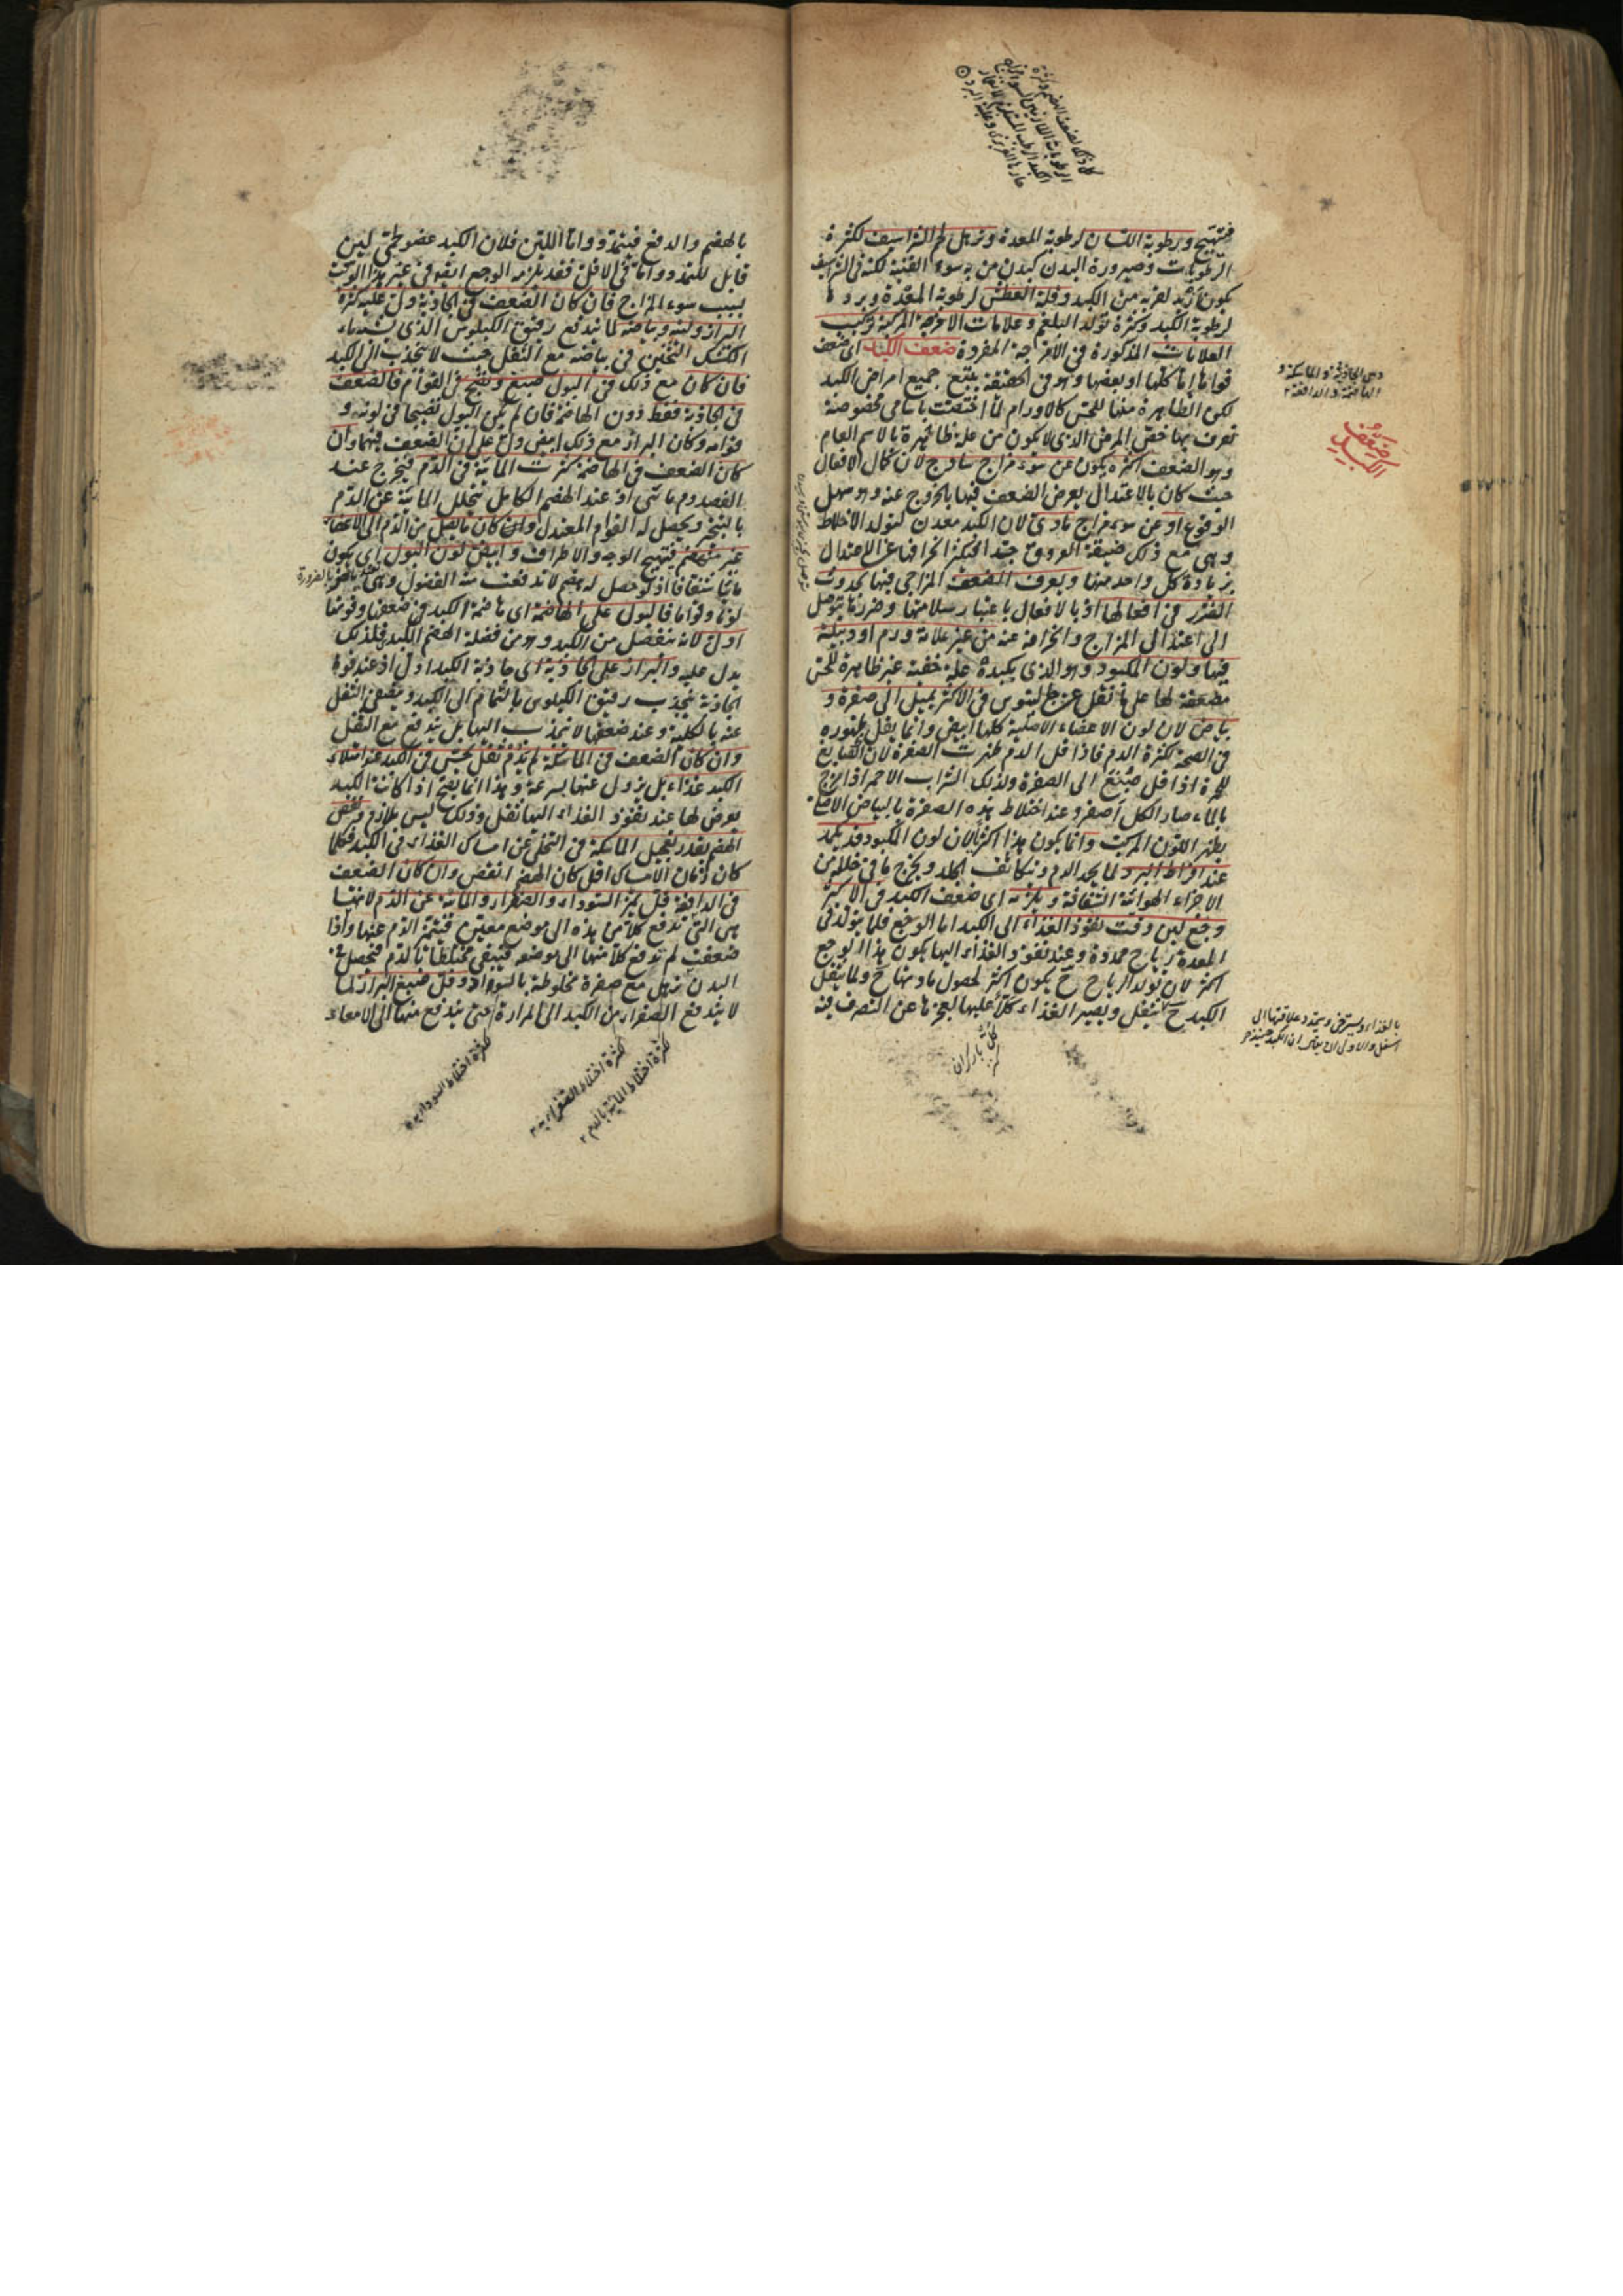 فيتهيج ورطوبة اللسان لرطوبة المعدة وترهل لحم الشراسيف لكثرة
الرطوبات وصيرورة البدن كبدن من به سوء القنية لكنه في الشراسيف
يكون أزيد لقربه من الكبد وقلة العطش لرطوبة المعدة وبردها
لرطوبة الكبد وكثرة تولد البلغم وعلامات الامزجة المركبة تركيب
العلامات المذكورة في الأمزجة المفردة ضعف الكبد اى ضعف
قواها إما كلها او بعضها وهو في الحقيقة يتبع جميع امراض الكبد
لكن الظاهرة منها للحس كالاورام لما اختصت باسامى مخصوصة
تعرف بها خص المرض الذى لا يكون من علة ظاهرة بالاسم العام
وهو الضعف اكثره يكون عن سوء مزاج ساذج لان كمال الافعال
حيث كان بالاعتدال يعرض الضعف فيها بالخروج عنه وهو سهل
الوقوع او عن سوء مزاج مادى لان الكبد معدن لتولد الاخلاط
وهى مع ذلك ضيقة العروق جدا فيكثر انحرافها عن الاعتدال
بزيادة كل واحد منها ويعرف الضعف المزاجى فيها بحدوث
الضرر فى افعالها اذ بالافعال باعتبار سلامتها وضررها يتوصل
الى اعتدال المزاج وانحرافه عنه من غير علامة ورم او دبيلة
فيها ولون المكبود وهو الذى بكبده علة خفية غير ظاهرة للحس
مضعفة لها على ما نقل عن جالينوس فى الاكثر يميل الى صفرة و
بياض لان لون الاعضاء الاصلية كلها ابيض وانما يقل ظهوره
فى الصحة لكثرة الدم فاذا قل الدم ظهرت الصفرة لان الصابغ
للحمرة اذا قل صبغ الى الصفرة ولذلك الشراب الاحمر اذا مزج
بالماء صار الكل أصفر وعند اختلاط هذه الصفرة بالبياض الاصلى
يظهر اللون المركب وانما يكون هذا اكثريا لان لون المكبود قد يكمد
عند افراط البرد لما يجمد الدم ويتكاثف الجلد ويخرج ما فى خلله من
الاجزاء الهوائية الشفافة ويلزمه اى ضعف الكبد فى الاكثر
وجع لين وقت نفوذ الغذاء الى الكبد اما الوجع فلما يتولد فى
المعدة رياح ممددة وعند نفوذ الغذاء اليها يكون هذا الوجع
اكثر لان تولد الرياح ح يكون اكثر لحصول مادتها ح ولما يثقل
الكبد ح يثقل ويصير الغذاء كلا عليها لعجزها عن التصرف فيه
وهى الجاذبة والماسكة و
الهاضمة والدافعة
ضعف
الكبد
بالهضم والدفع فيتمدد واما اللين فلان الكبد عضو لحمى لين
قابل للتمدد واما فى الاقل فقد يلزمه الوجع ايضا فى غير هذا الوقت
بسبب سوء المزاج فان كان الضعف فى الجاذبة دل عليه كثرة
البراز ولينه وبياضه لما يندفع رقيق الكيلوس الذى يشبه ماء
الكشك الثخين فى بياضه مع الثفل حيث لا ينجذب الى الكبد
فان كان مع ذلك فى البول صبغ ونضج فى القوام فالضعف
فى الجاذبة فقط دون الهاضمة فان لم يكن البول نضيجا فى لونه و
قوامه وكان البراز مع ذلك ابيض دل على ان الضعف فيهما وان
كان الضعف فى الهاضمة كثرت المائية فى الدم فيخرج عند
الفصد دم مائى اذ عند الهضم الكامل يتحلل المائية عن الدم
بالتبخر ويحصل له القوام المعتدل وان كان ما يصل من الدم الى الاعضاء
غير منهضم فتهيج الوجه والاطراف وابيض لون البول اى يكون
مائيا شفافا اذ لو حصل له هضم لاندفعت منه الفضول وهى بالضرورة
لونا وقواما فالبول على الهاضمة اى هاضمة الكبد فى ضعفها وقوتها
ادل لانه ينفصل من الكبد وهو من فضلة الهضم الكبدى فلذلك
يدل عليه والبراز على الجاذبة اى جاذبة الكبد ادل اذ عند قوة
الجاذبة ينجذب رقيق الكيلوس بالتمام الى الكبد ويبقى الثفل
عنه بالكلية وعند ضعفها لا ينجذب اليها بل يندفع مع الثفل
وان كان الضعف فى الماسكة لم يدم ثقل يحس فى الكبد عند امتلاء
الكبد غذاء بل يزول عنها بسرعة وهذا انما يصح اذا كانت الكبد
يعرض لها عند نفوذ الغذاء اليها ثقل وذلك ليس بلازم ونقص
الهضم بقدر تعجيل الماسكة فى التخلى عن امساك الغذاء فى الكبد فكلما
كان زمان الامساك اقل كان الهضم انقص وان كان الضعف
فى الدافعة قل تميز السوداء والصفراء والمائية عن الدم لانها
هى التى تدفع كلا من هذه الى موضع معين فيتميز الدم عنها واذا
ضعفت لم تدفع كلا منها الى موضعه فيبقى مختلطا بالدم فيحصل فى
البدن ترهل مع صفرة مخلوطة بالسواد وقل صبغ البراز لما
لا يندفع الصفراء من الكبد الى المرارة حتى يندفع منها الى الامعاء
لكثرة اختلاط المائية بالدم
لكثرة اختلاط الصفراء به
لكثرة اختلاط السوداء به